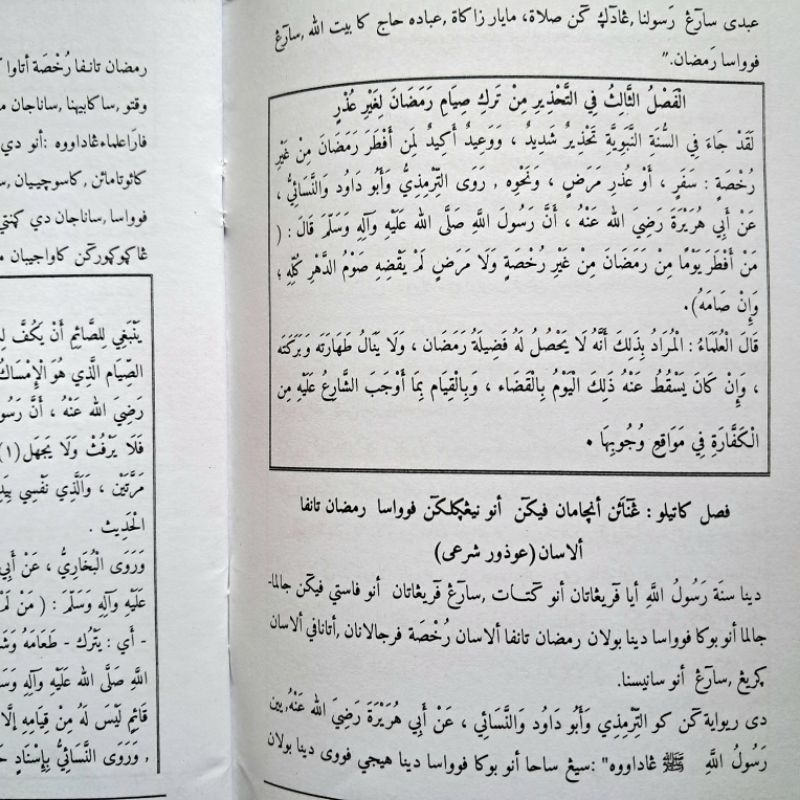 عبدى سارڠ رَسولنا, ڠادݢ كن صلاة، مايار زاكاة, عباده حاج كا بيت الله ,سارڠ
فوواسا رَمضان."
الْفَصْلُ الثَّالِثُ فِي التَّحْذِيرِ مِنْ تَركِ صِيَامِ رَمَضَانَ لِغَيْرِ عُذْرٍ
لَقَدْ جَاءَ فِي السُّنَةِ النَّبَوِيَّةِ تَحْذِيرٌ شَدِيدٌ ، وَوَعِيدٌ أَكِيدٌ لِمَن أَفْطَرَ رَمَضَانَ مِنْ غَيْرِ
رُخْصَةٍ : سَفَرٍ ، أَوْ عُذرِ مَرَضٍ ، وَنَحْوِه , رَوَى التِّرْمِذِيُّ وَأَبُو دَاوُد وَالنَّسَائِيُّ ،
عَنْ أَبِي هُرَيْرَةَ رَضِيَ الله عَنْهُ ، أَنَّ رَسُولَ اللهِ صَلَّى الله عَلَيْهِ وَآلِهِ وَسَلَّمَ قَالَ : (
مَنْ أَفْطَرَ يَوْمًا مِنْ رَمَضَانَ مِنْ غَيرِ رُخْصَةٍ وَلَا مَرَضٍ لَمْ يَقْضِهِ صَوْمُ الدَّهْرِ كُلِّهِ ؛
وَإِنْ صَامَهُ).
قَالَ الْعُلَمَاءُ : الْمُرَادُ بِذَلِكَ أَنَّهُ لَا يَحْصُلُ لَهُ فَضِيلَةُ رَمَضَان ، وَلَا يَنَالُ طَهَارَتَه وَبَرَكَتَه
، وَإِنْ كَانَ يَسْقُطُ عَنْهُ ذَلِكَ الْيَوْمُ بِالْقَضَاء ، وَبِالْقِيَامِ بِمَا أَوْجَبَ الشَّارِعُ عَلَيْهِ مِن
الْكَفَّارَةِ فِي مَوَاقِعِ وُجُوبِهَا .
فصل كاتيلو : ڠنائن أنچامان فيكن أنو نيڠݢلكن فوواسا رمضان تانفا
ألاسان (عوذور شرعى)
دينا سنَة رَسُولُ اللَّهِ أيا قريڠاتان أنو كتات ,سارڠ قريڠاتان أنو فاستي فيكن جالما-
جالما أنو بوكا فوواسا دينا بولان رمضان تانفا ألاسان رُخْصَة فرجالانان ,أتانافي ألاسان
ݢريڠ ,سارڠ أنو سانيسنا.
دى رِيواية كن كو التِّرْمِذِي وَأَبُو دَاوُد وَالنَّسَائِي ، عَنْ أَبِي هُرَيْرَةَ رَضِيَ الله عَنْهُ,يين
رَسُولُ اللَّهِ ﷺ ڠاداووه" :سيڠ ساحا أنو بوكا فوواسا دينا هيجي فووى دينا بولان
رمضان تانفا رُخْصَة أتاوا
وقتو ,ساكابيهنا ,ساناجان
فارَاعلماءڠاداووه :أنو دي
كائوتاماتن ,كاسوچييان
فوواسا ,ساناجان دي
كاواجيبان
يَنْبَغِي لِلصَّائِمِ أَنْ يَكُفَّ
الصِّيَام الَّذِي هُوَ الْإِمْسَاكُ
رَضِيَ الله عَنْهُ ، أَنَّ رَسُو
فَلَا يَرْفُثْ وَلَا يَجهَل(١)
مَرَّتَيْن ، وَالَّذِي نَفْسِي بِيَدِ
الْحَدِيث .
وَرَوَى الْبُخَارِيُّ ، عَنْ أَبِي
عَلَيْهِ وَآلِهِ وَسَلَّمَ : ( مَنْ لَمْ
- أَي : يَتْرُك - طَعَامَهُ وَشَ
اللَّهِ صَلَّى الله عَلَيْهِ وَآلِهِ وَسَ
قَائِمٍ لَيْسَ لَهُ مِنْ قِيَامِهِ إِلَّا
, وَرَوَى النَّسَائِيُّ بِإِسْنَادٍ حَ